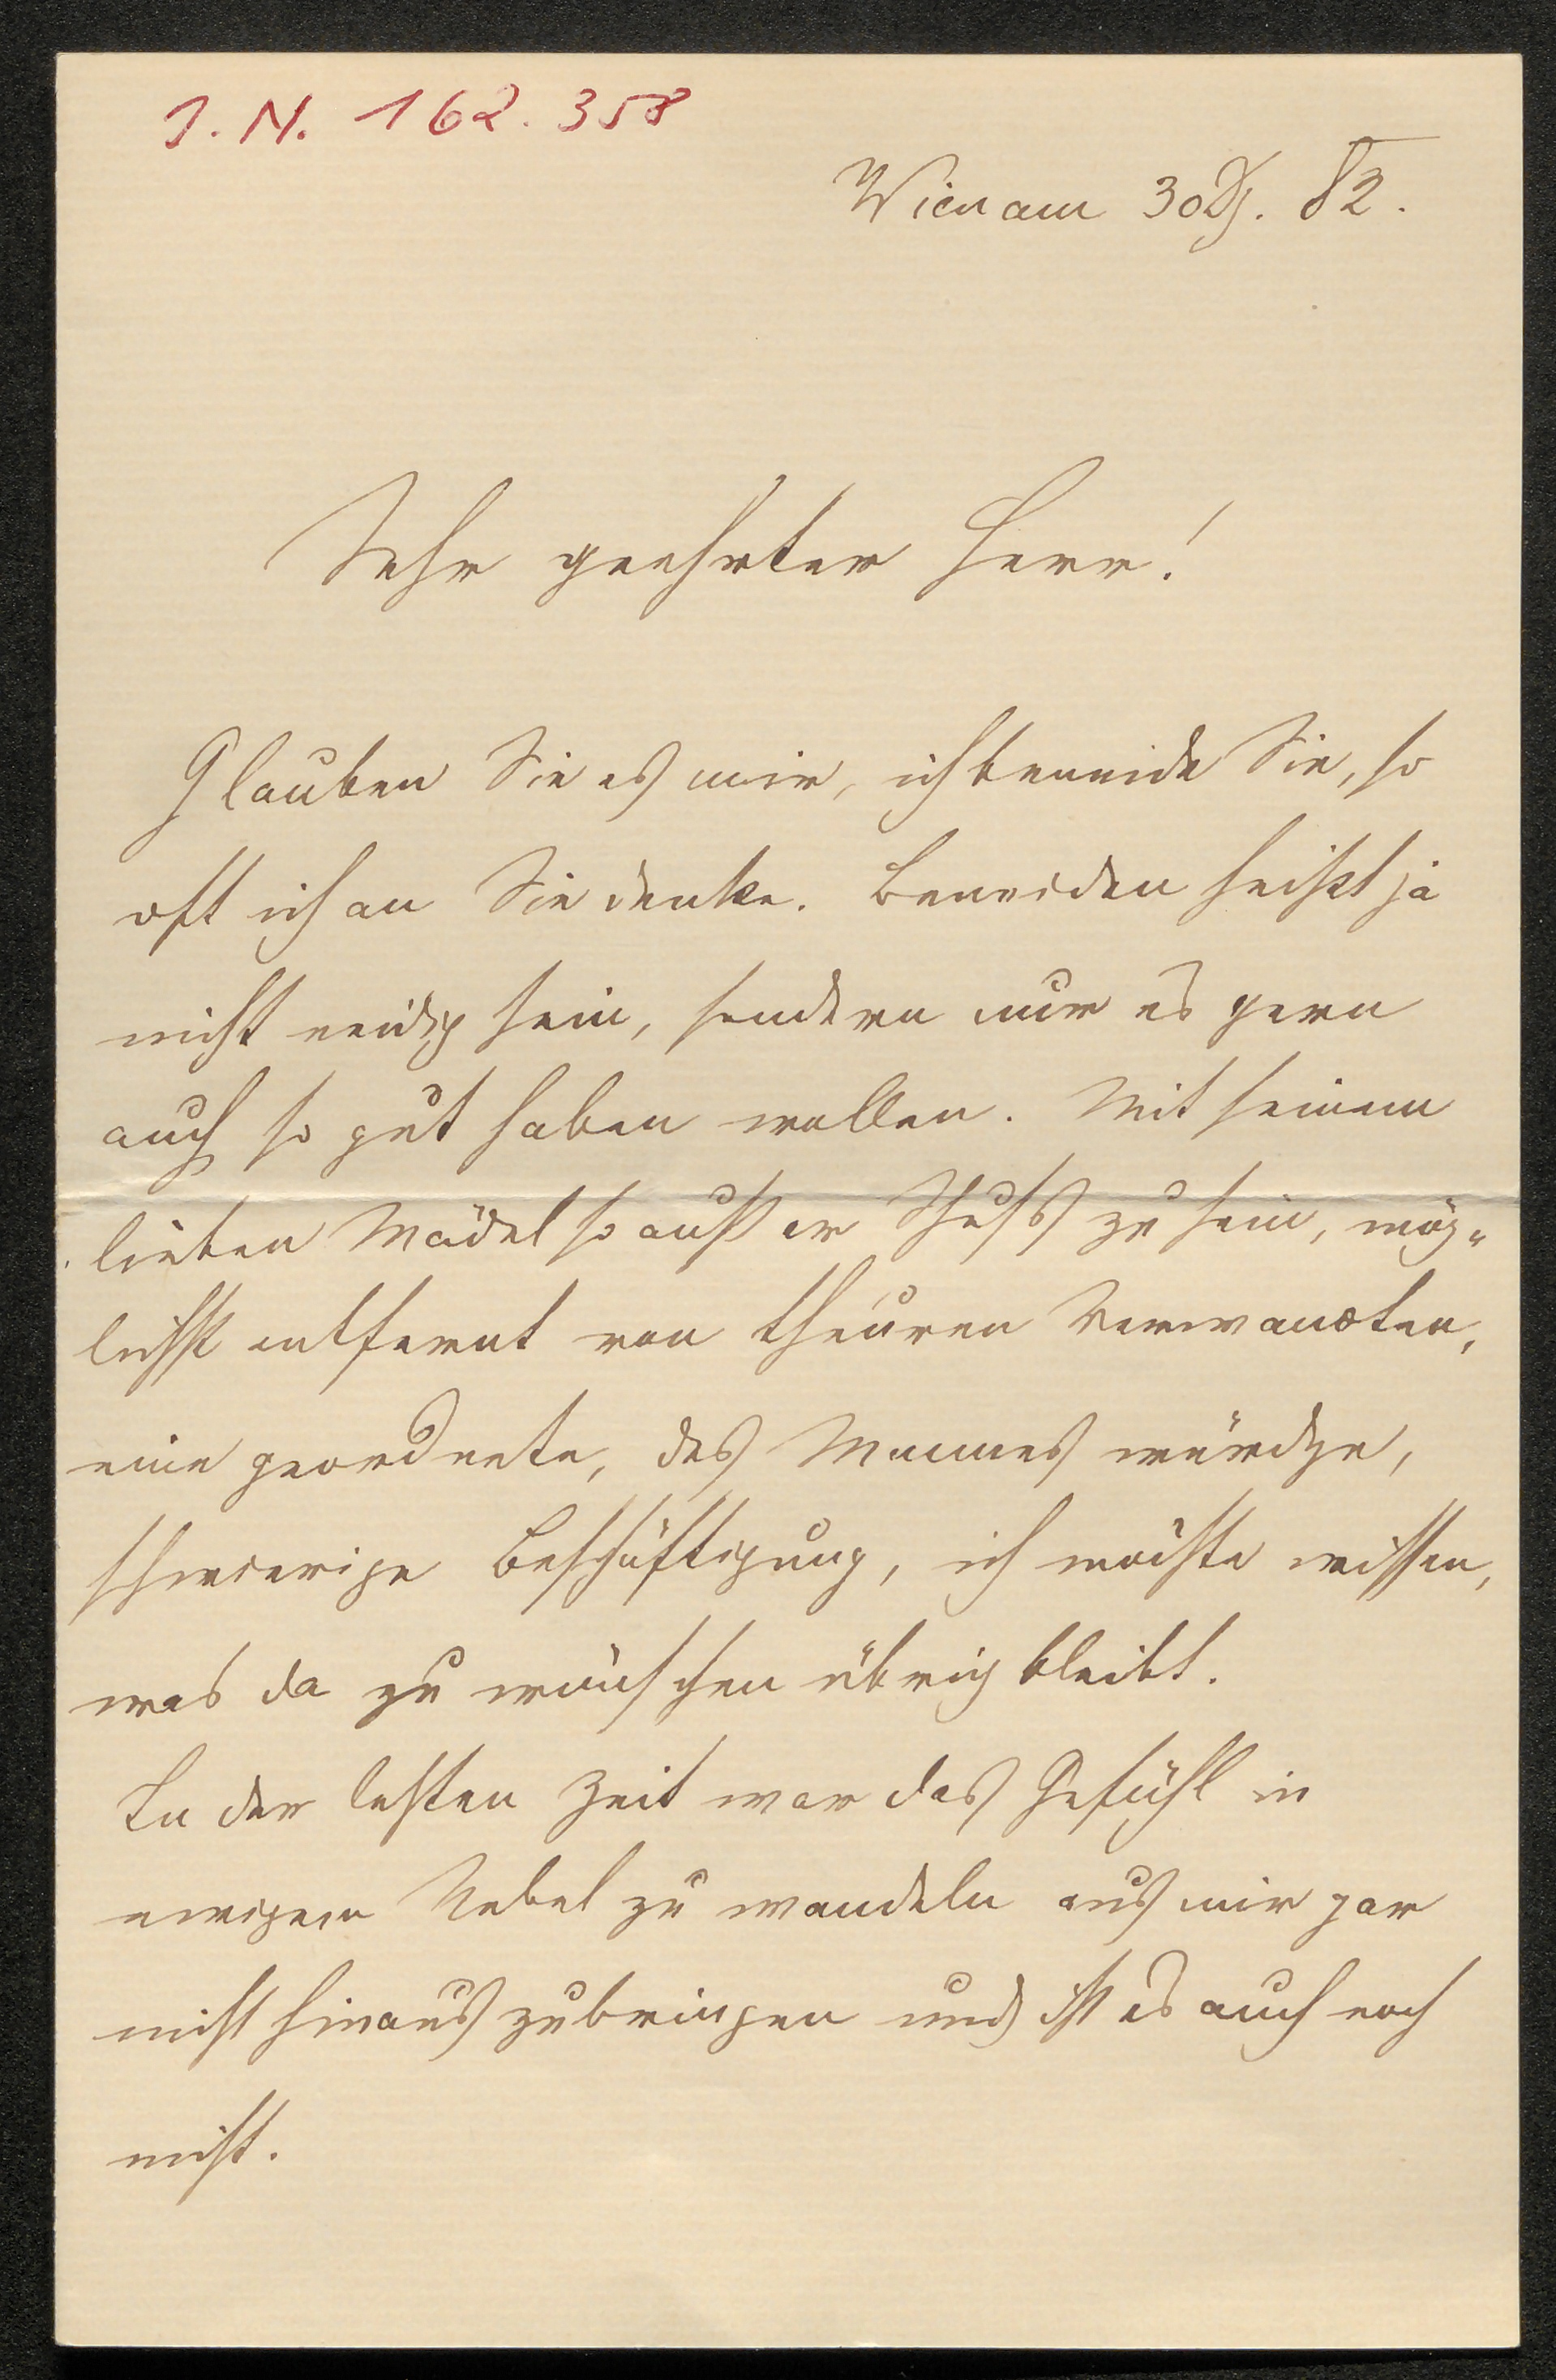 I. N. 162.358
Wien am 30. 82.
Sehr geehrter Herr!
Glauben Sie es mir, ich beneide Sie, so
oft ich an Sie denke. Beneiden heißt ja
nicht neidig sein, sondern nur es gern
auch so gut haben wollen. Mit seinem
lieben Mädel so außer Schuß zu sein, mög-
lichst entfernt von theuren Verwandten,
eine geordnete, des Mannes würdige,
schwierige Beschäftigung, ich möchte wissen,
was da zu wünschen übrig bleibt.
In der letzten Zeit war das Gefühl in
ewigem Nebel zu wandeln aus mir gar
nicht hinauszubringen und ist es auch noch
nicht.